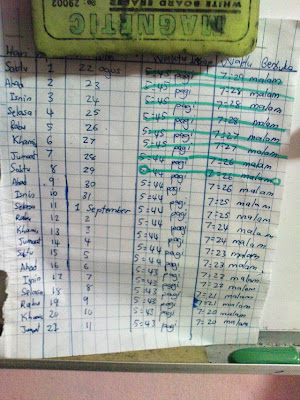 MAGNETIC
WHITE BOARD ERASER
Hari Waktu
Sabtu 1 22 ogos 5:45 pagi 7:29 malam
Ahad 2 23 5:45 pagi malam
Isnin 3 24 5:45 pagi 7:28 malam
Selasa 4 25 5:45 pagi 7:28 malam
Rabu 5 26 5:45 pagi 7:27 malam
Khamis 6 27 5:45 pagi 7:27 malam
Jumaat 7 28 5:44 pagi 7:26 malam
Sabtu 8 29 5:44 pagi 7:26 malam
Ahad 9 30 5:44 pagi 7:26 malam
Isnin 10 31 5:44 pagi 7:25 malam
Selasa 11 1 September 5:44 pagi 7:25 malam
Rabu 12 2 5:44 pagi 7:25 malam
Khamis 13 3 5:44 pagi 7:24 malam
Jumaat 14 4 5:44 pagi 7:24 malam
Sabtu 15 5 5:44 pagi 7:23 malam
Ahad 16 6 pagi 7:23 malam
Isnin 17 7 5:43 pagi 7:22 malam
Selasa 18 8 5:43 pagi malam
Rabu 19 9 5:43 pagi 7:21 malam
Khamis 20 10 5:43 pagi 7:20 malam
Jumaat 21 11 5:43 pagi 7:20 malam